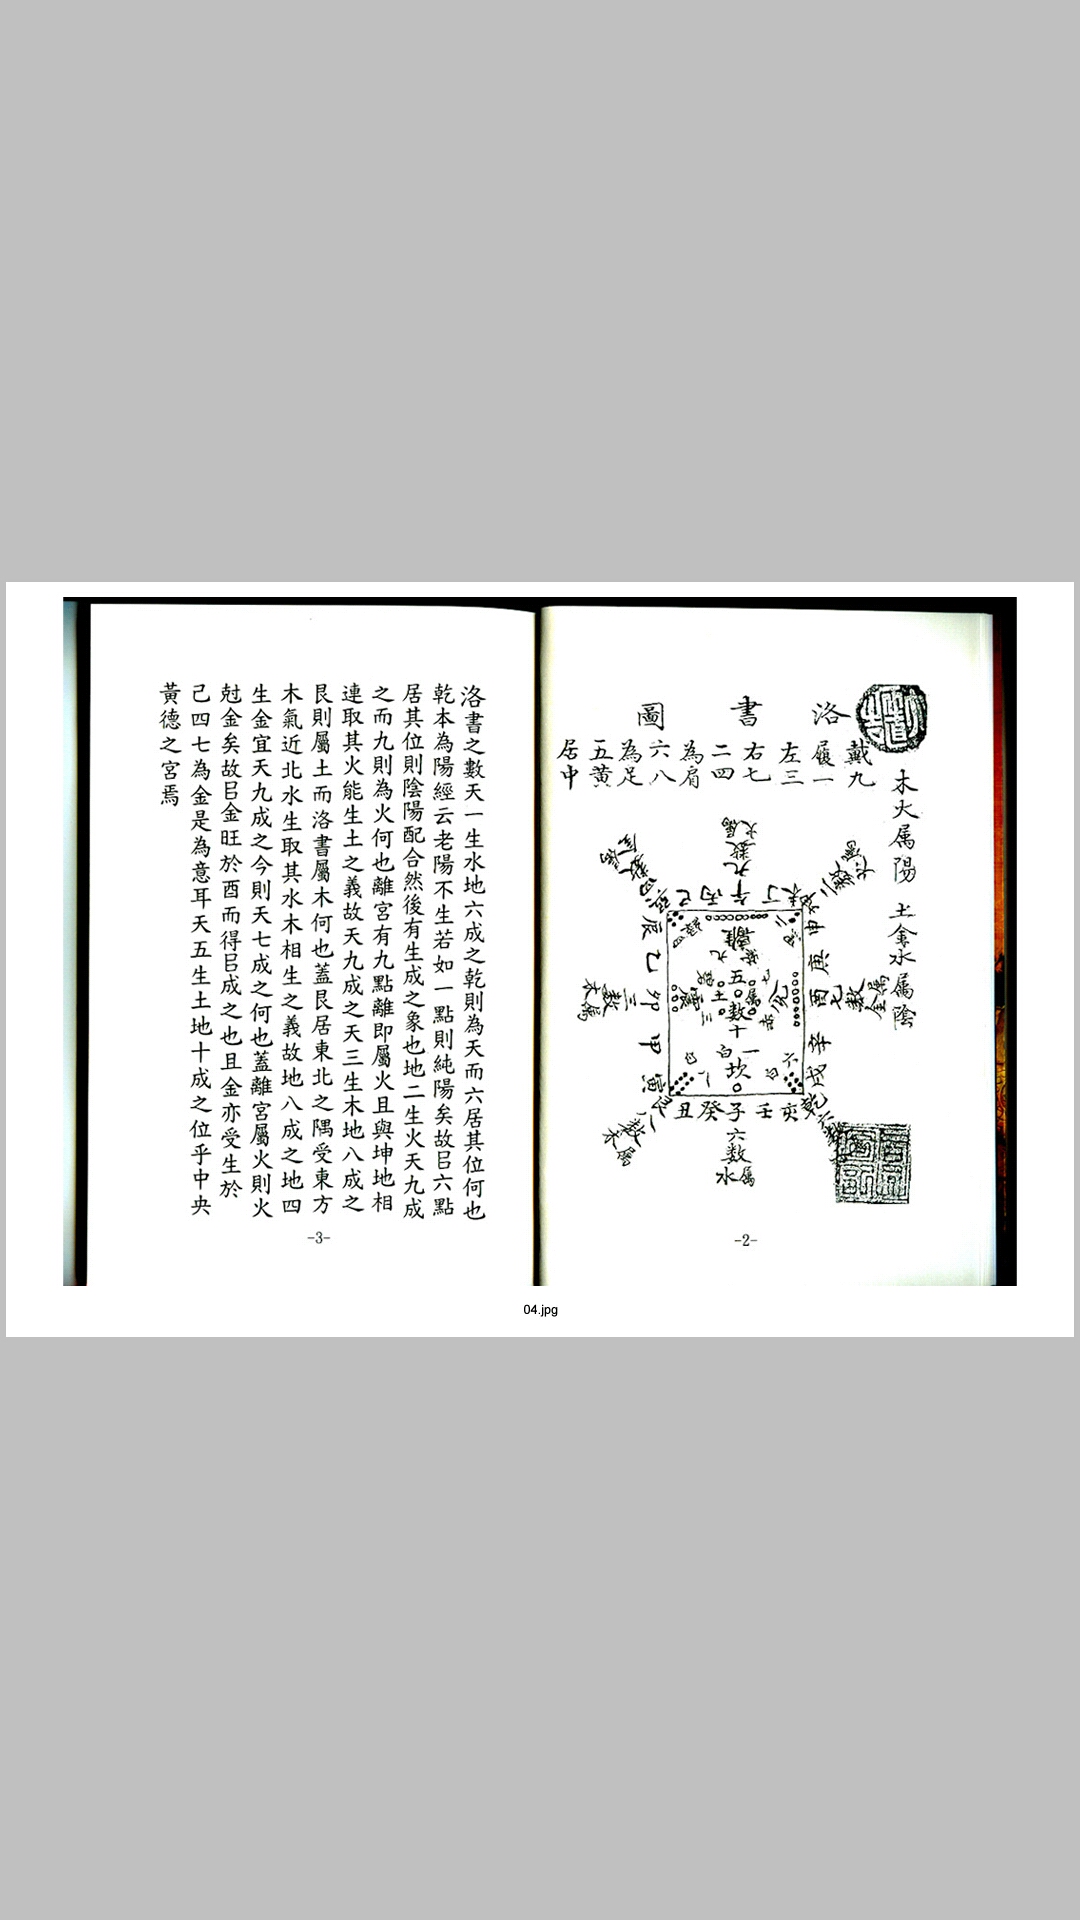 洛書圖
戴九
履一
左三
右七
二四
為肩
六八
為足
五黃
居中
木火属陽 土金水属陰
九數属火
二數属火
七數属金
六數属水
八數属木
三數属木
巳丙午丁未
申庚酉辛戌乾
亥壬子癸丑艮
寅甲卯乙辰
離
九
五
土
數
十
一白
坎
六白
八白
-2-
洛書之數天一生水地六成之乾則為天而六居其位何也
乾本為陽經云老陽不生若如一點則純陽矣故㠯六點
居其位則陰陽配合然後有生成之象也地二生火天九成
之而九則為火何也離宮有九點離即屬火且與坤地相
連取其火能生土之義故天九成之天三生木地八成之
艮則屬土而洛書屬木何也蓋艮居東北之隅受東方
木氣近北水生取其水木相生之義故地八成之地四
生金宜天九成之今則天七成之何也蓋離宮屬火則火
尅金矣故㠯金旺於酉而得㠯成之也且金亦受生於
己四七為金是為意耳天五生土地十成之位乎中央
黃德之宮焉
-3-
04.jpg